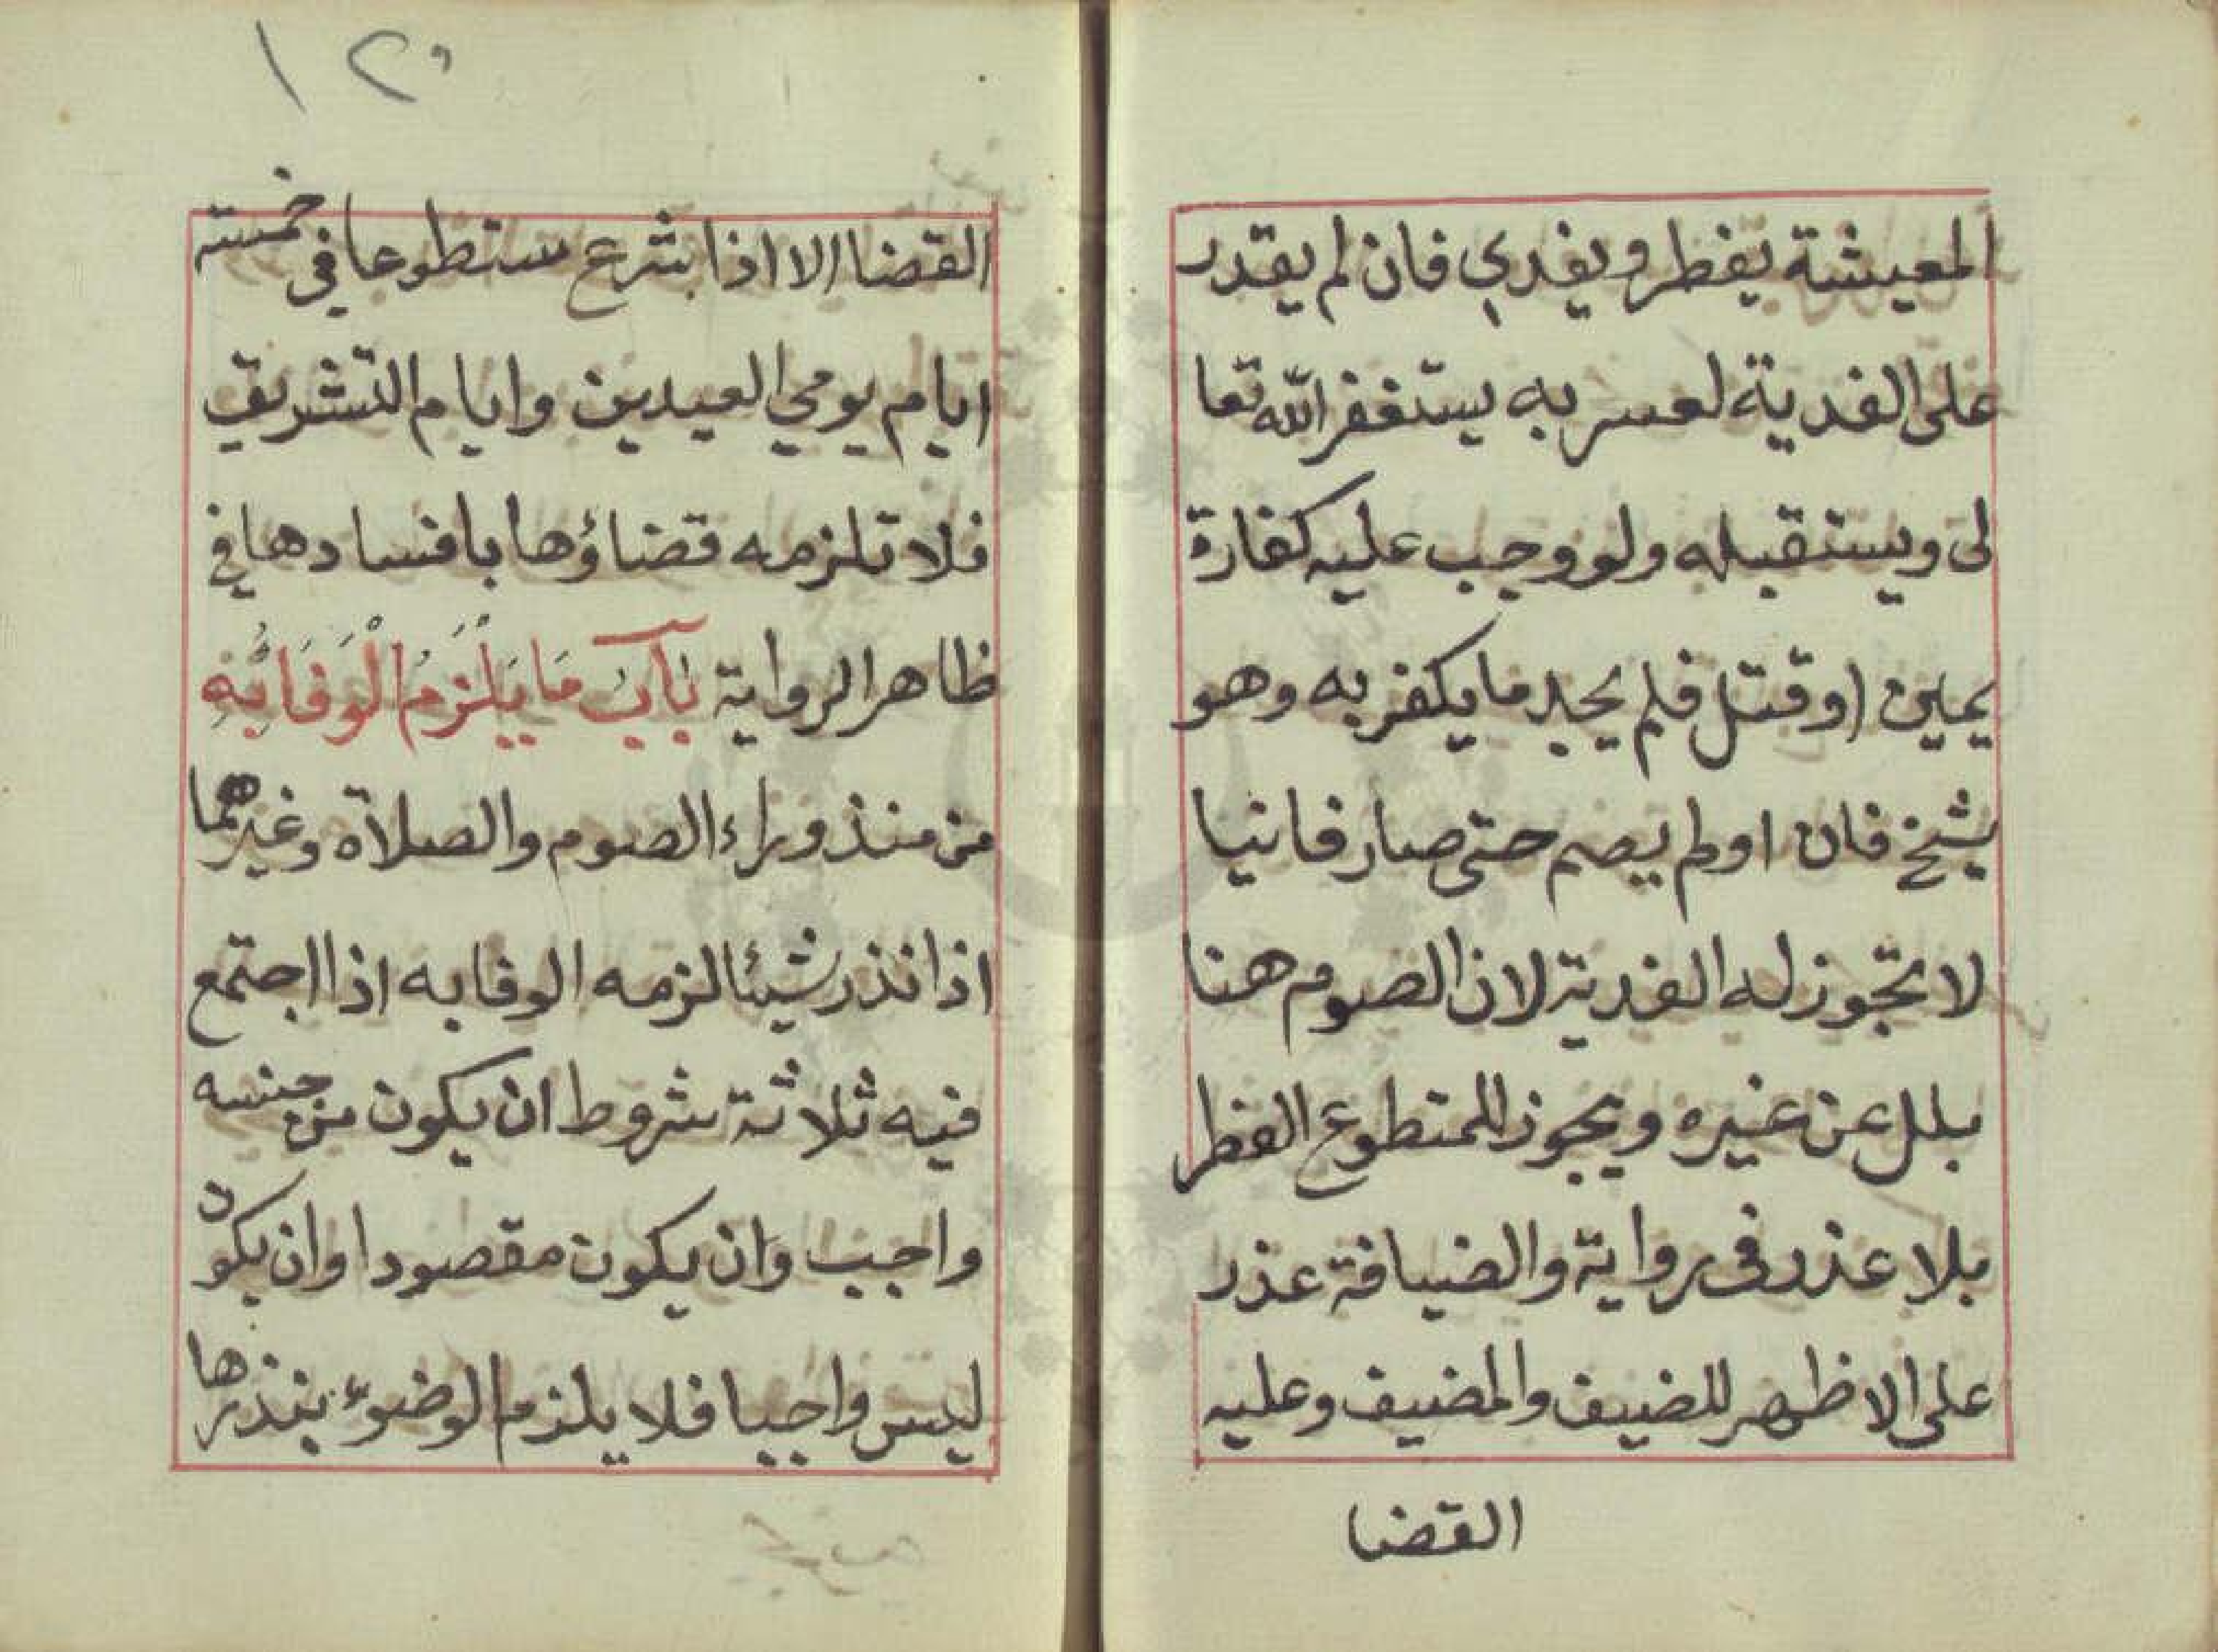 المعيشة يفطر ويفدي فان لم يقدر
على الفدية لعسر به يستغفر الله تعا
لى ويستقبله ولو وجب عليه كفارة
يمين او قتل فلم يجد ما يكفر به وهو
شيخ فان اولم يصم حتى صار فانيا
لا تجوز له الفدية لان الصوم هنا
بدل عن غيره ويجوز للمتطوع الفطر
بلا عذر في رواية والضيافة عذر
على الاظهر للضيف والمضيف وعليه
القضا
١٢٠
القضا الا اذا شرع متطوعا في خمسة
ايام يومي العيدين وايام التشريق
فلا تلزمه قضاؤها بافسادها في
ظاهر الرواية باب ما يلزم الوفا به
من منذوراء الصوم والصلاة وغيرهما
اذا نذر شيئا لزمه الوفا به اذا اجتمع
فيه ثلاثة شروط ان يكون من جنسه
واجب وان يكون مقصودا وان يكون
ليس واجبا فلا يلزم الوضوء بنذرها